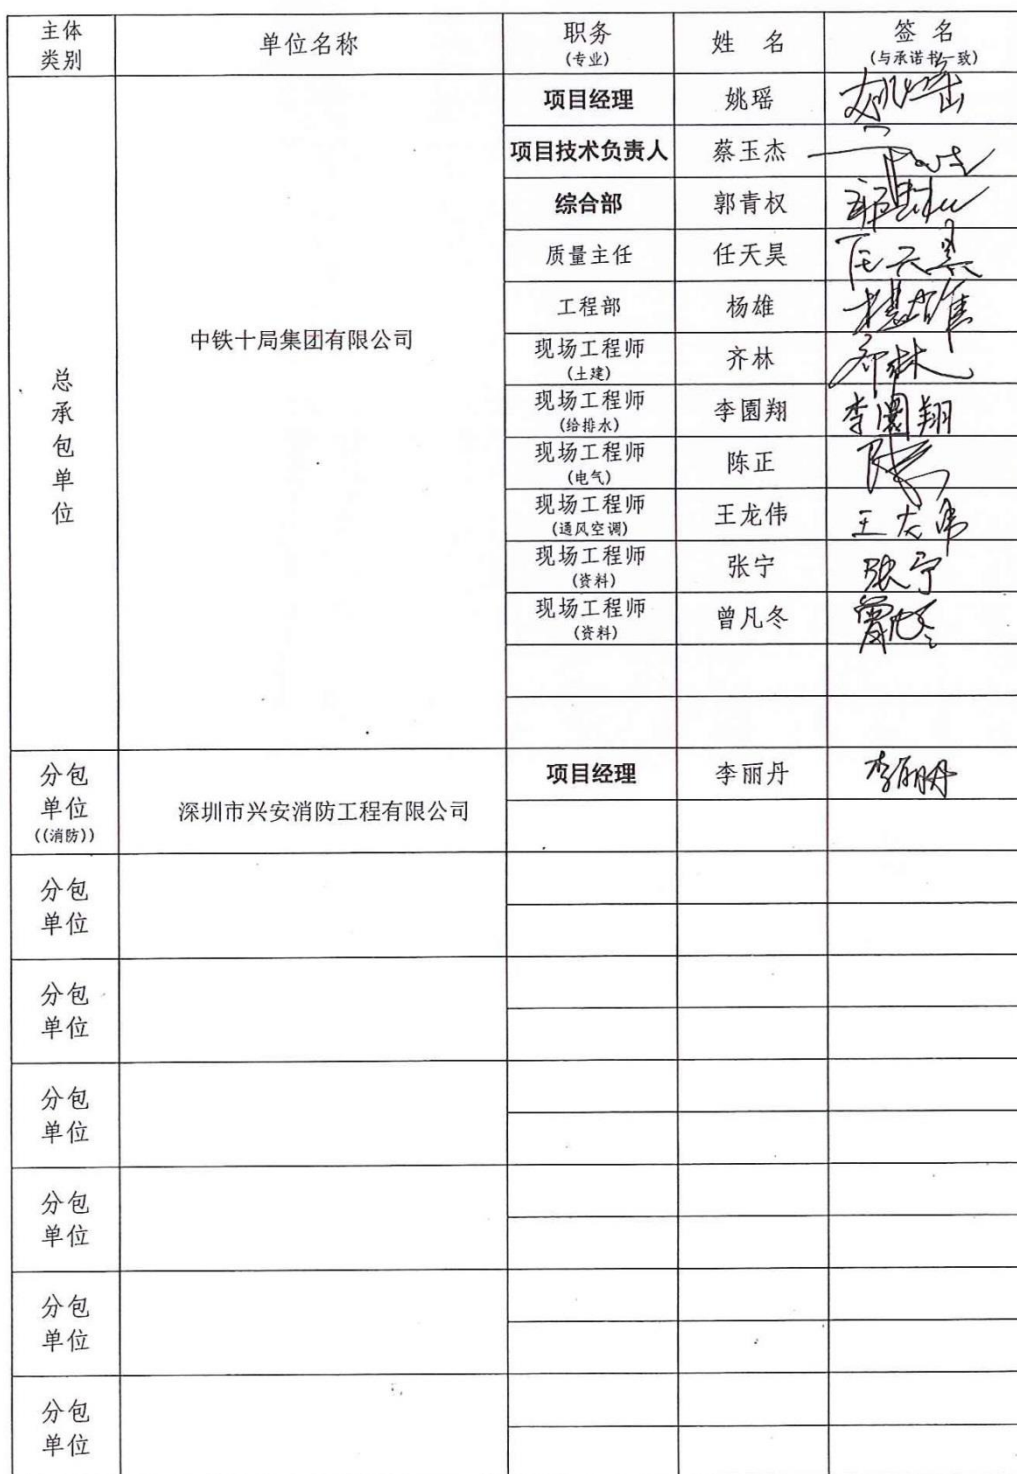 主体
类别
单位名称
职务
(专业)
姓 名
签 名
(与承诺书一致)
总
承
包
单
位
中铁十局集团有限公司
项目经理
姚瑶
姚瑶
项目技术负责人
蔡玉杰
综合部
郭青权
质量主任
任天昊
任天昊
工程部
杨雄
杨雄
现场工程师
(土建)
齐林
齐林
现场工程师
(给排水)
李圆翔
李圆翔
现场工程师
(电气)
陈正
现场工程师
(通风空调)
王龙伟
王龙伟
现场工程师
(资料)
张宁
张宁
现场工程师
(资料)
曾凡冬
曾凡冬
分包
单位
((消防))
深圳市兴安消防工程有限公司
项目经理
李丽丹
李丽丹
分包
单位
分包
单位
分包
单位
分包
单位
分包
单位
分包
单位